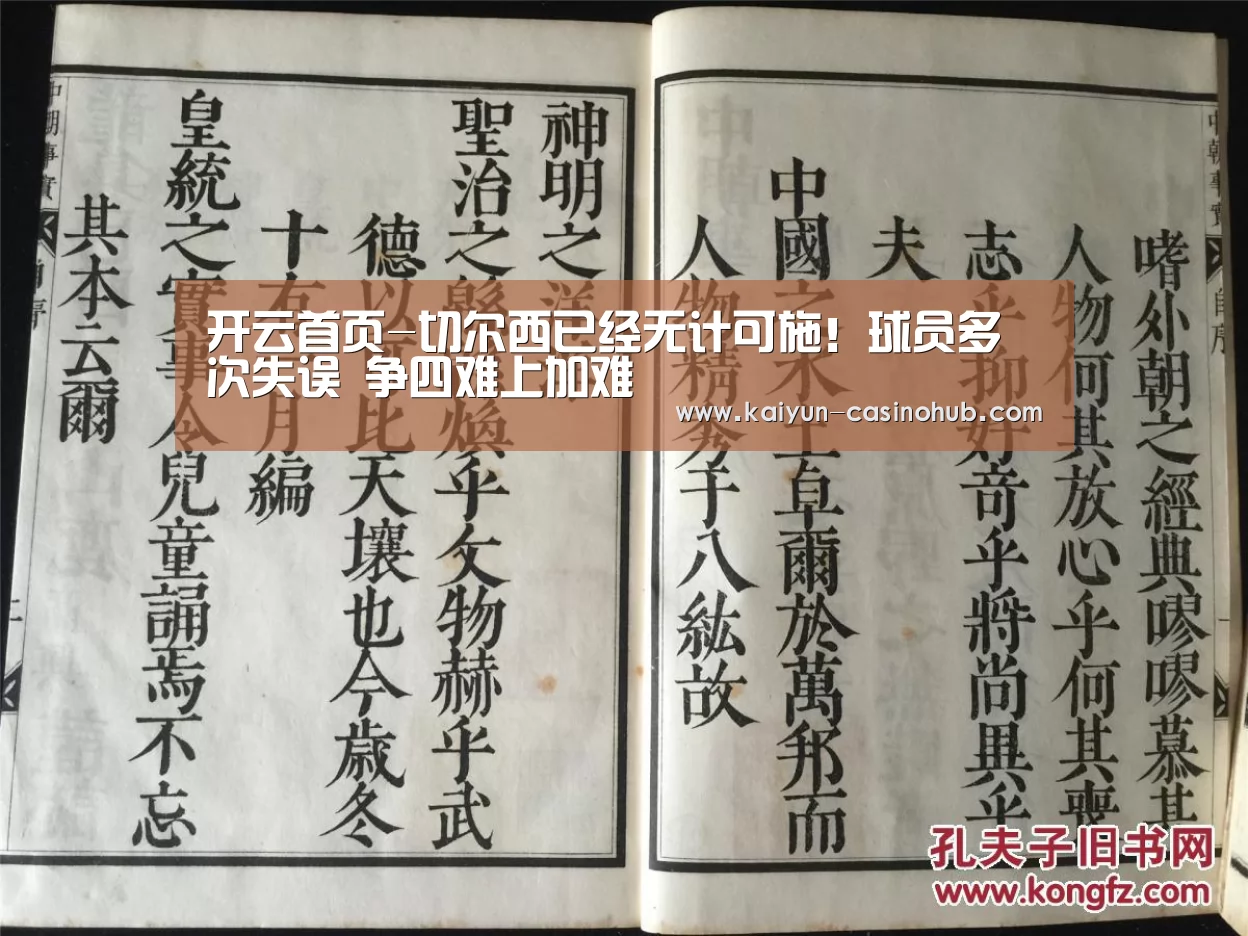 中朝事實 自序
嗜外朝之經典嘐嘐慕其
人物何其放心乎何其喪
志乎抑好奇乎將尚異乎
夫
中國之水土卓爾於萬邦而
人物精秀于八紘故
神明之洋
聖治之緜煥乎文物赫乎武
德以比天壤也今歲冬
十有月編
皇統之實事令兒童誦焉不忘
其本云爾
中朝事實 自序 二
开云首页-切尔西已经无计可施!球员多
次失误 争四难上加难
www.kaiyun-casinohub.com
孔夫子旧书网
www.kongfz.com